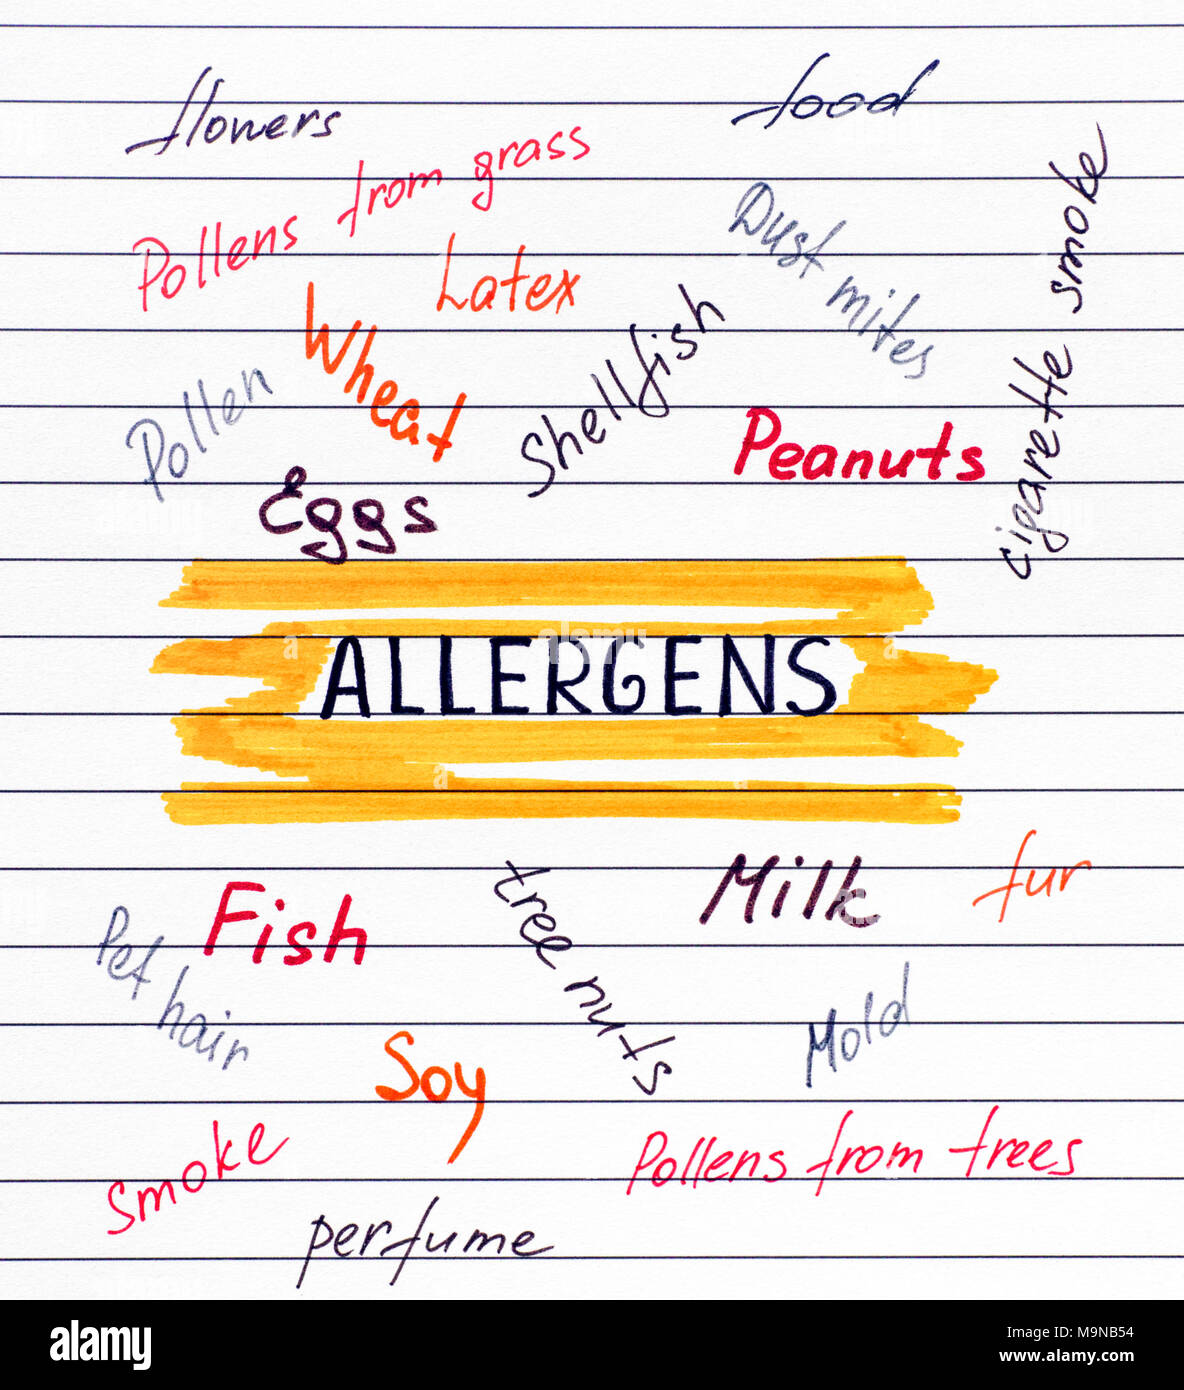 flowers
food
Pollens from grass
cigarette smoke
Dust mites
Latex
Wheat
Shellfish
Pollen
Peanuts
Eggs
ALLERGENS
alamy
a
a
a
a
Milk
fur
tree nuts
Fish
Pet hair
Mold
Soy
Pollens from trees
Smoke
perfume
alamy
Image ID: M9NB54
www.alamy.com